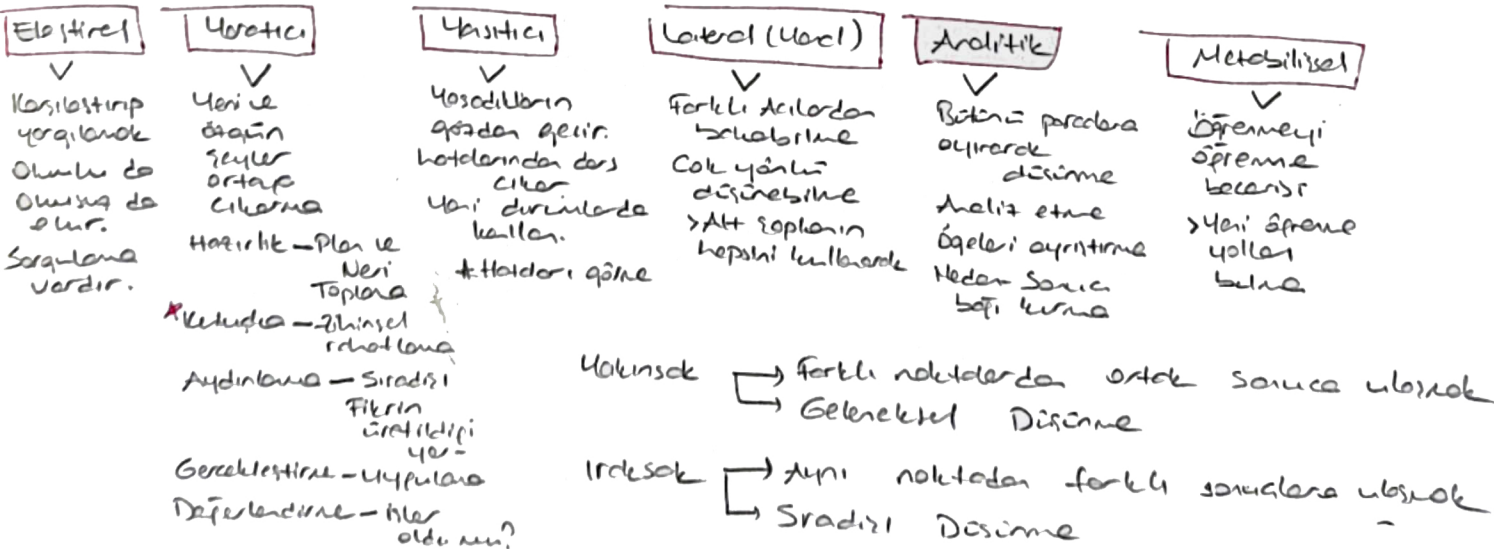 Eleştirel
Karşılaştırıp
yargılamak
Olumlu da
Olumsuz da
olur.
Sorgulama
vardır.
Yaratıcı
Yeni ve
özgün
şeyler
ortaya
çıkarma
Hazırlık – Plan ve
Veri
Toplama
*Kuluçka – Zihinsel
rahatlama
Aydınlanma – Sıradışı
Fikrin
üretildiği
yer
Gerçekleştirme – Uygulama
Değerlendirme – İşler
oldu mu?
Yansıtıcı
Yaşadıklarını
gözden geçir.
hatalarından ders
çıkar
Yeni durumlarda
kullan.
*Hataları görme
Lateral (Yanal)
Farklı Açılardan
bakabilme
Çok yönlü
düşünebilme
>Altı şapkanın
hepsini kullanarak
Analitik
Bütünü parçalara
ayırarak
düşünme
Analiz etme
Ögeleri ayrıştırma
Neden Sonuç
bağı kurma
Metabilişsel
Öğrenmeyi
öğrenme
becerisi
>Yeni öğrenme
yolları
bulma
Yakınsak → Farklı noktalardan ortak sonuca ulaşmak
→ Geleneksel Düşünme
Iraksak → Aynı noktadan farklı sonuçlara ulaşmak
→ Sıradışı Düşünme